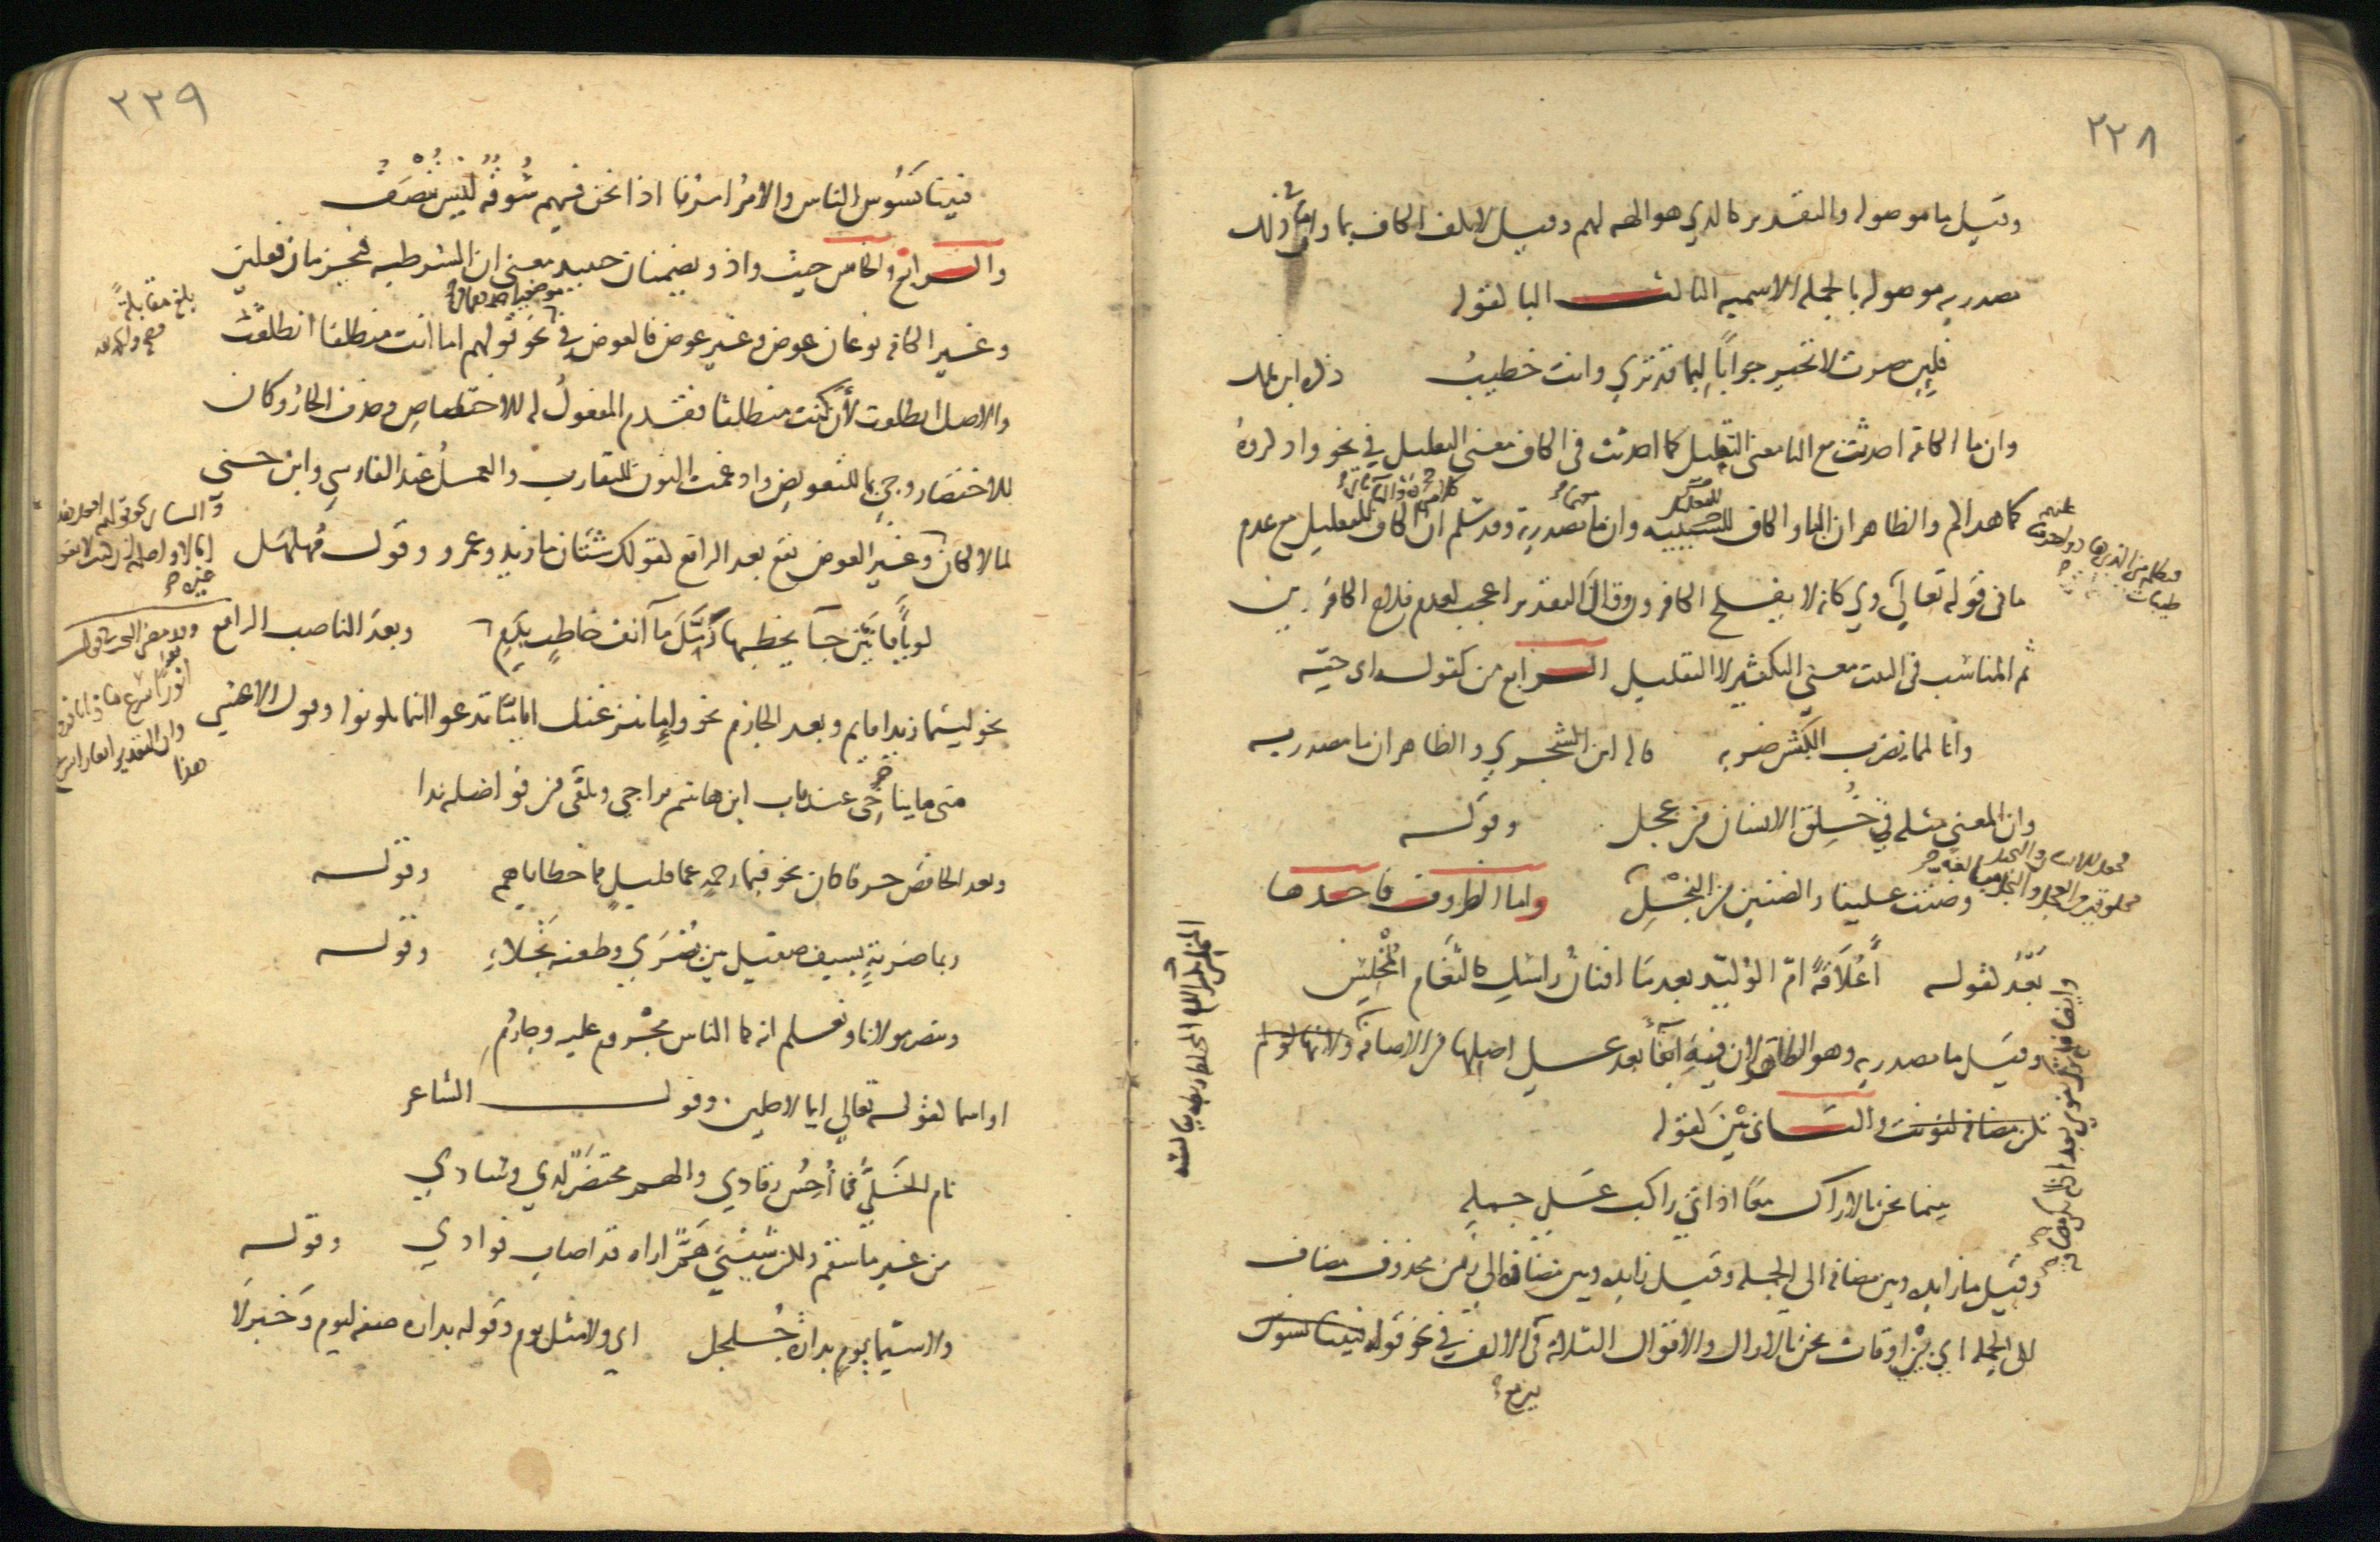 ٢٢٨
وقيل ما موصوله والتقدير كالذي هو الهه لهم وقيل لا تكف الكاف بما وان ما في ذلك
مصدريه موصوله بالجمله الاسميه الثالث البا كقوله
فلين صرت لا تحير جوابا لبما قد ترى وانت خطيب ذكره ابن مالك
وان ما الكافه احدثت مع البا معنى التقليل كما احدثت في الكاف معنى التعليل في نحو واذكروه
كما هداكم والظاهر ان البا والكاف للتعليل وان ما معهما مصدريه وقد سلم ان الكاف للتعليل مع عدم
ما في قوله تعالى وي كانه لا يفلح الكافرون وقال التقدير اعجب لعدم فلاح الكافرين
ثم المناسب في البيت معنى التكثير لا التقليل الرابع من كقول ابي حيه
وانا لمما نضرب الكبش ضربه قاله ابن الشجري والظاهر ان ما مصدريه
وان المعنى مثله في خلق الانسان من عجل وقوله
وضنت علينا والضنين من البخل واما الظروف فاحدها
بعد كقوله أعلاقة ام الوليد بعد ما افنان راسك كالثغام المخلس
وقيل ما مصدريه وهو الظاهر لان فيه ابقاء بعد على اصلها من الاضافه ولانها لو لم
تكن مضافه لنونت والثاني بين كقوله
بينما نحن بالاراك معا اذ اتى راكب على جمله
وقيل ما زايده وبين مضافه الى الجمله وقيل زايده وبين مضافه الى زمن محذوف مضاف
الى الجمله اي بين اوقات نحن بالاراك والاقوال الثلاثه في الالف في نحو قوله فبينا نسوس
٢٢٩
فبينا نسوس الناس والامر امرنا اذا نحن فيهم سوقة ليس ننصف
والرابع والخامس حيث واذ ويضمنان حينيذ معنى ان الشرطيه فيجزمان فعلين
وغير الكافه نوعان عوض وغير عوض فالعوض في موضعين احدهما نحو قولهم اما انت منطلقا انطلقت
والاصل انطلقت لأن كنت منطلقا فقدم المفعول له للاختصاص وحذف الجار وكان
للاختصار وجي بما للتعويض وادغمت النون للتقارب والعمل عند الفارسي وابن جني
لما لا لكان وغير العوض تقع بعد الرافع كقولك شتان ما زيد وعمرو وقول مهلهل
لو بأبانين جا يخطبها رمل ما انف خاطب بدم وبعد الناصب الرافع
نحو ليتما زيدا قايم وبعد الجازم نحو واما ينزغنك ايا ما تدعوا اينما تكونوا وقول الاعشى
متى ما تناخي عند باب ابن هاشم تراحي وتلقى من فواضله ندا
وبعد الخافض حرفا كان نحو فبما رحمه عما قليل مما خطاياهم وقوله
ربما ضربة بسيف صقيل بين بصرى وطعنه نجلاء وقوله
وننصر مولانا ونعلم انه كما الناس مجروم عليه وجارم
او اسما كقوله تعالى ايما الاجلين وقول الشاعر
نام الخلي فما أحس رقادي والهم محتضر لدي وسادي
من غير ما سقم ولكن شفني هم اراه قد اصاب فوادي وقوله
ولا سيما يوم بدارة جلجل اي ولا مثل يوم وقوله بداره صفه ليوم وخبر لا
بلغ مقابلة